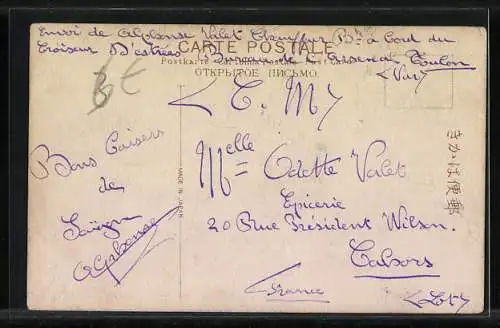 Envoi de Alphonse Valet Chauffeur Bté à bord du
Croiseur D'estrées
CARTE POSTALE
de l'Arsenal Toulon
Postkarte
ОТКРЫТОЕ ПИСЬМО.
<Var>
<C. M>
Bons Baisers
de
Saïgon
Alphonse
MADE IN JAPAN
きかは便郵
Melle Odette Valet
Epicerie
20 Rue Président Wilson.
Cahors
France
<Lot>